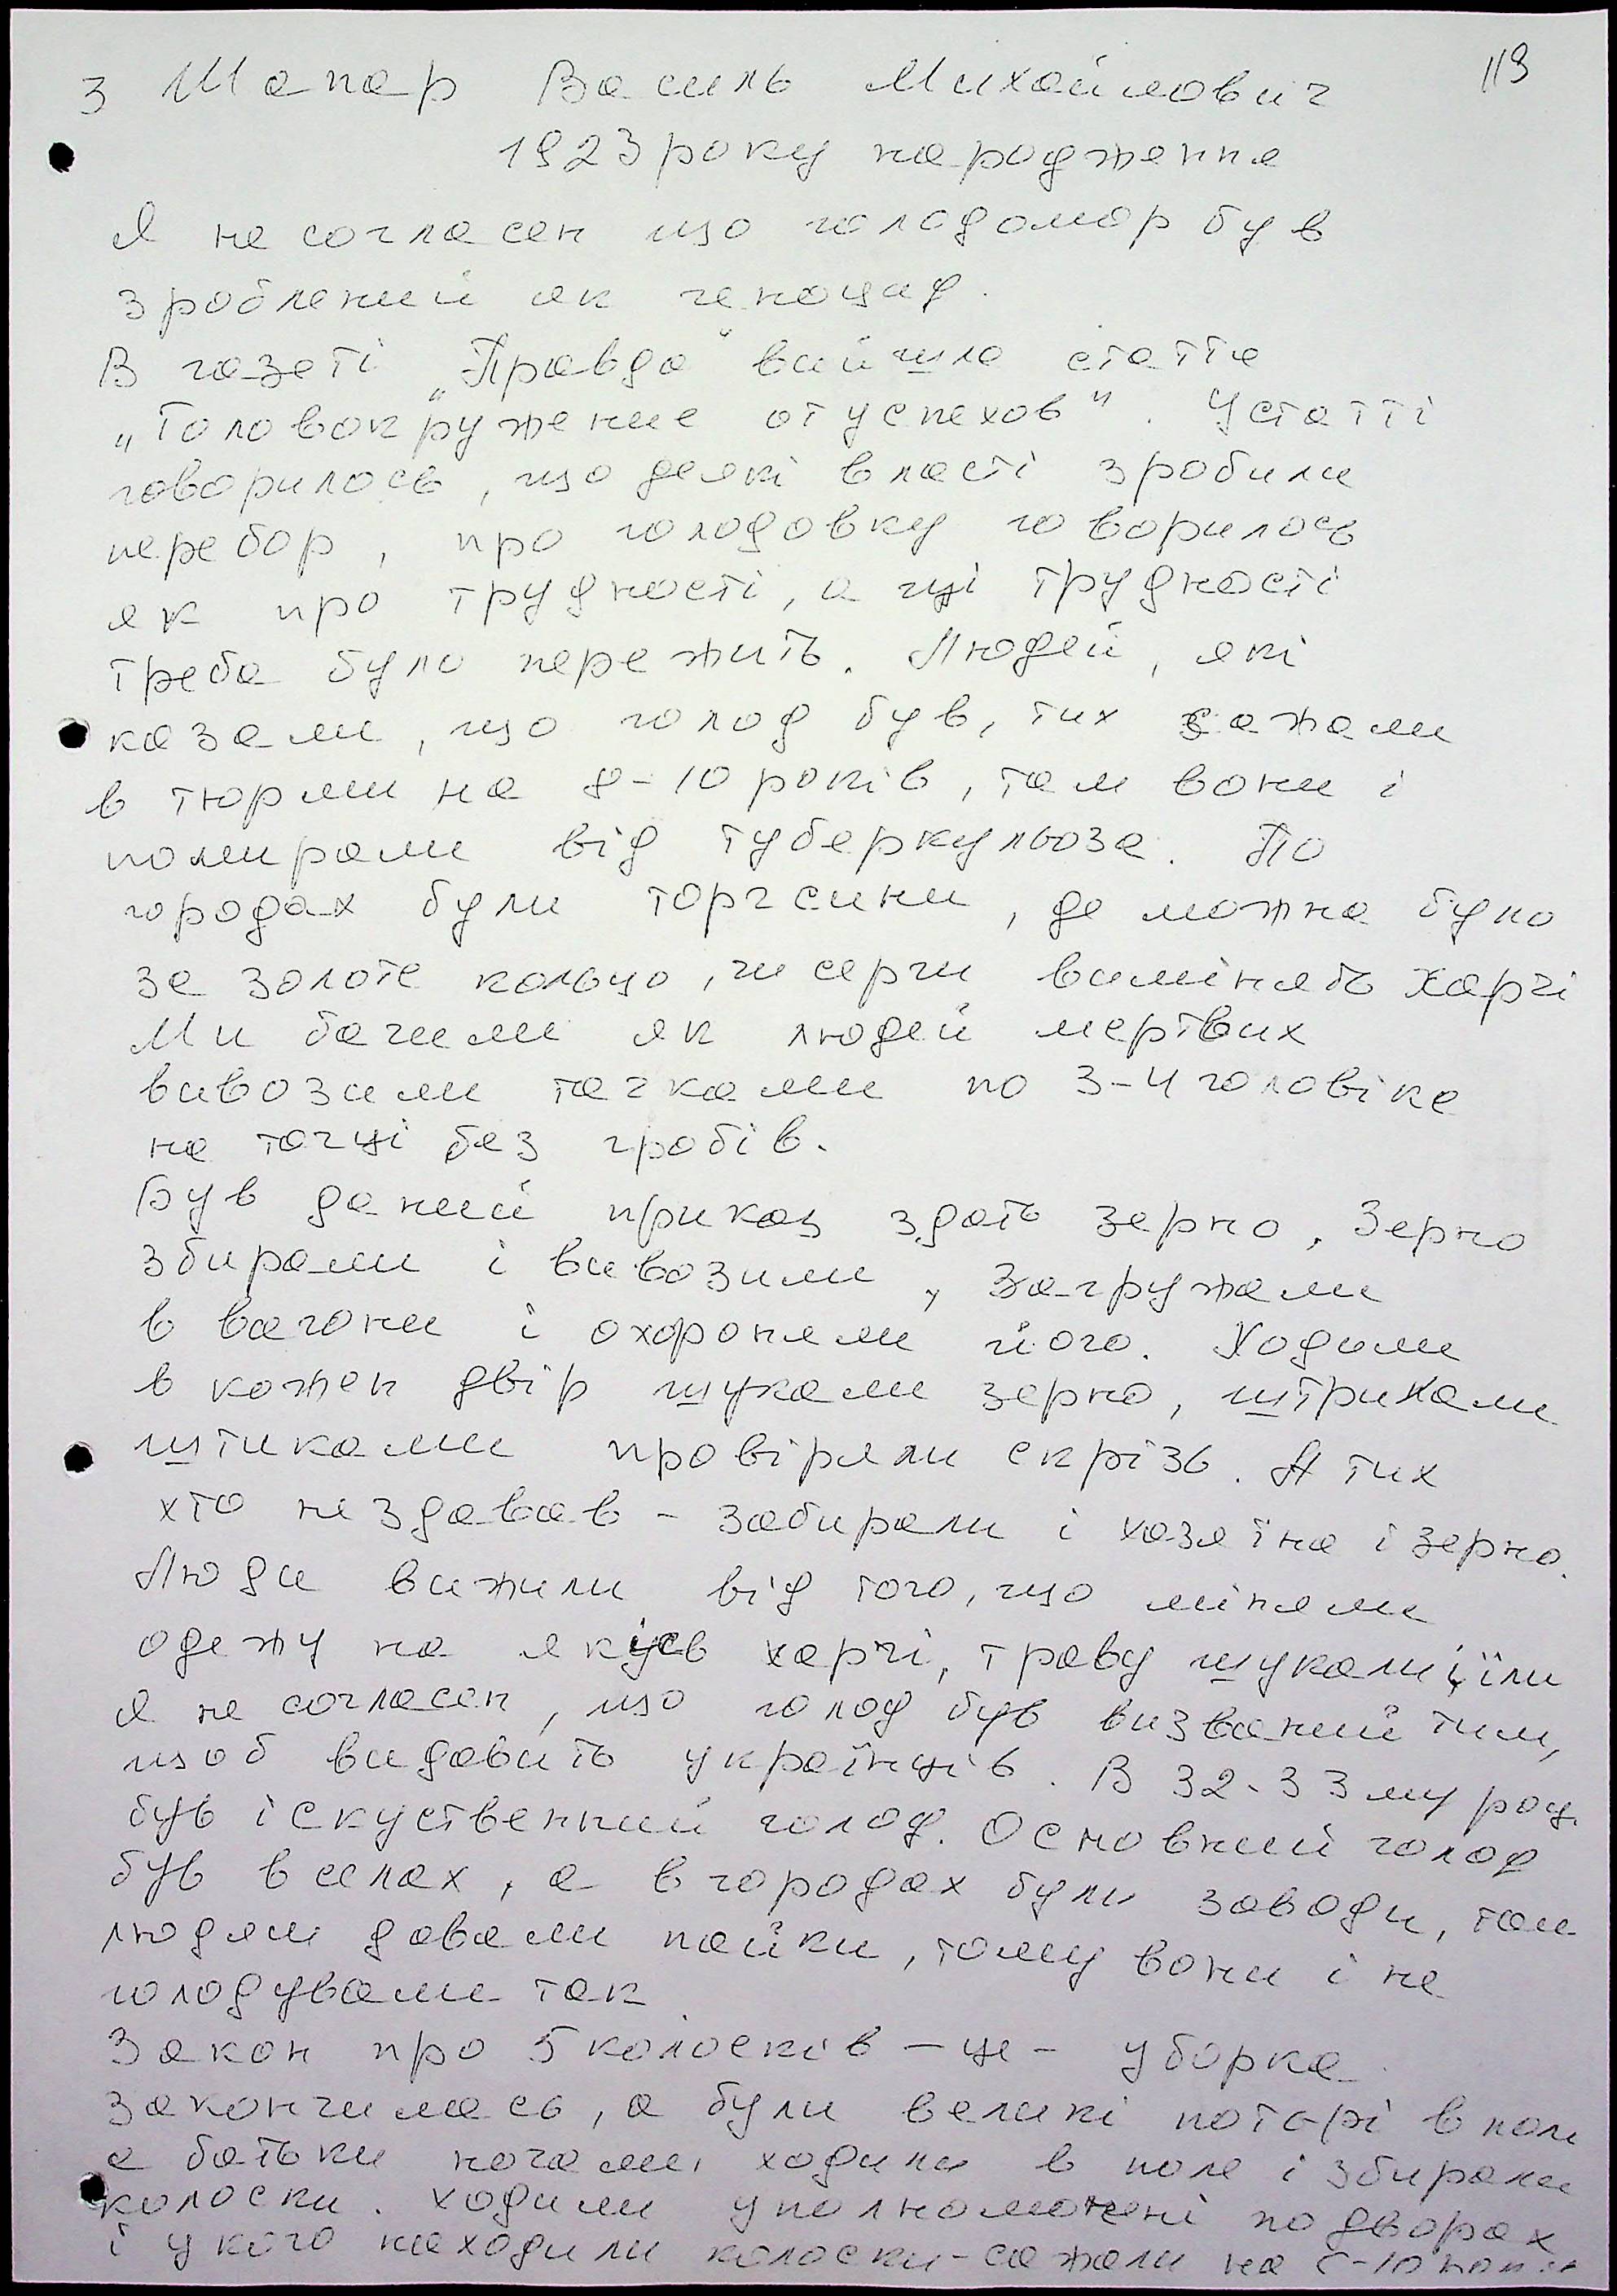 119
3 Шапар Василь Михайлович
1923 року народження
Я не согласен що голодомор був
зроблений як геноцид.
В газеті „Правда" вийшла стаття
„Головокружение от успехов". У статті
говорилось, що деякі власті зробили
перебор, про голодовку говорилось
як про трудності, а ці трудності
треба було пережить. Людей, які
казали, що голод був, тих сажали
в тюрми на 8-10 років, там вони і
помирали від туберкульоза. По
городах були торгсини, де можна було
за золоте кольцо, чи серги вимінять харчі
Ми бачили як людей мертвих
вивозили тачками по 3-4 чоловіка
на тачці без гробів.
Був даний приказ здать зерно, Зерно
збирали і вивозили, загружали
в вагони і охороняли його. Ходили
в кожен двір шукали зерно, штрикали
штиками провіряли скрізь. А тих
хто не здавав - забирали і хазяїна і зерно.
Люди вижили від того, що міняли
одежу на якісь харчі, траву шукали і їли
Я не согласен, що голод був визваний тим,
щоб видавить українців. В 32-33 му роц.
був іскуственний голод. Основний голод
був в селах, а в городах були заводи, там
людям давали пайки, тому вони і не
голодували так
Закон про 5 колосків - це - уборка
закончилась, а були великі потері в полі
а батьки ночами, ходили в поле і збирали
колоски. Ходили уполномочені по дворах
і у кого находили колоски - сажали на